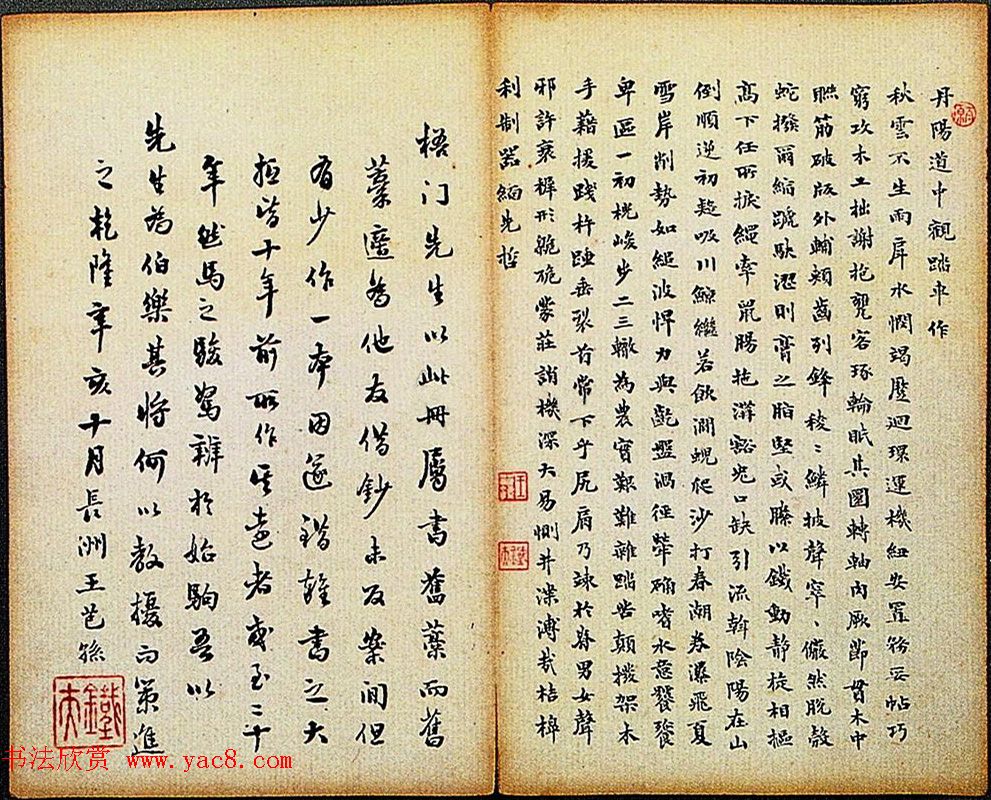 丹陽道中觀踏車作
秋雲不生雨岸水悯竭壓迴環運機紐安置務妥帖巧
窮攻木工拙謝抱甕客琢輪眂其圜轉軸内厥節貫木中
聮筋破版外輔頰齒列鋒稜〻鱗披聲窣〻儼然脱殼
蛇撥爾縮蹏駃澀則膏之脂堅或縢以鐵動静旋相樞
高下任所捩繩牽鼠腸拖溝豁兕口缺引流斡陰陽在山
倒順逆初疑吸川鯨繼若飲澗蜺爬沙打春潮卷瀑飛夏
雪岸削勢如縋波悍力與齕盤渦徑犖确嗜水意饕餮
卑區一初桄峻步二三轍為農實艱難雜踏苦顛撥架木
手藉援踐杵踵垂裂首常下乎尻肩乃竦於脊男女聲
邪許衺樨形臲卼蒙莊誚機深大易惻井渫溥哉桔槔
利制器緬先哲
梧门先生以此册屬書舊藁而舊
藁適為他友借鈔未及案間但
有少作一本因遂錯雜書之大
抵皆十年前所作其遠者或至二十
年然馬之駿駑辨於始駒吾以
先生為伯樂其將何以教擾而策進
之乾隆辛亥十月長洲王芑孫
书法欣赏 www.yac8.com